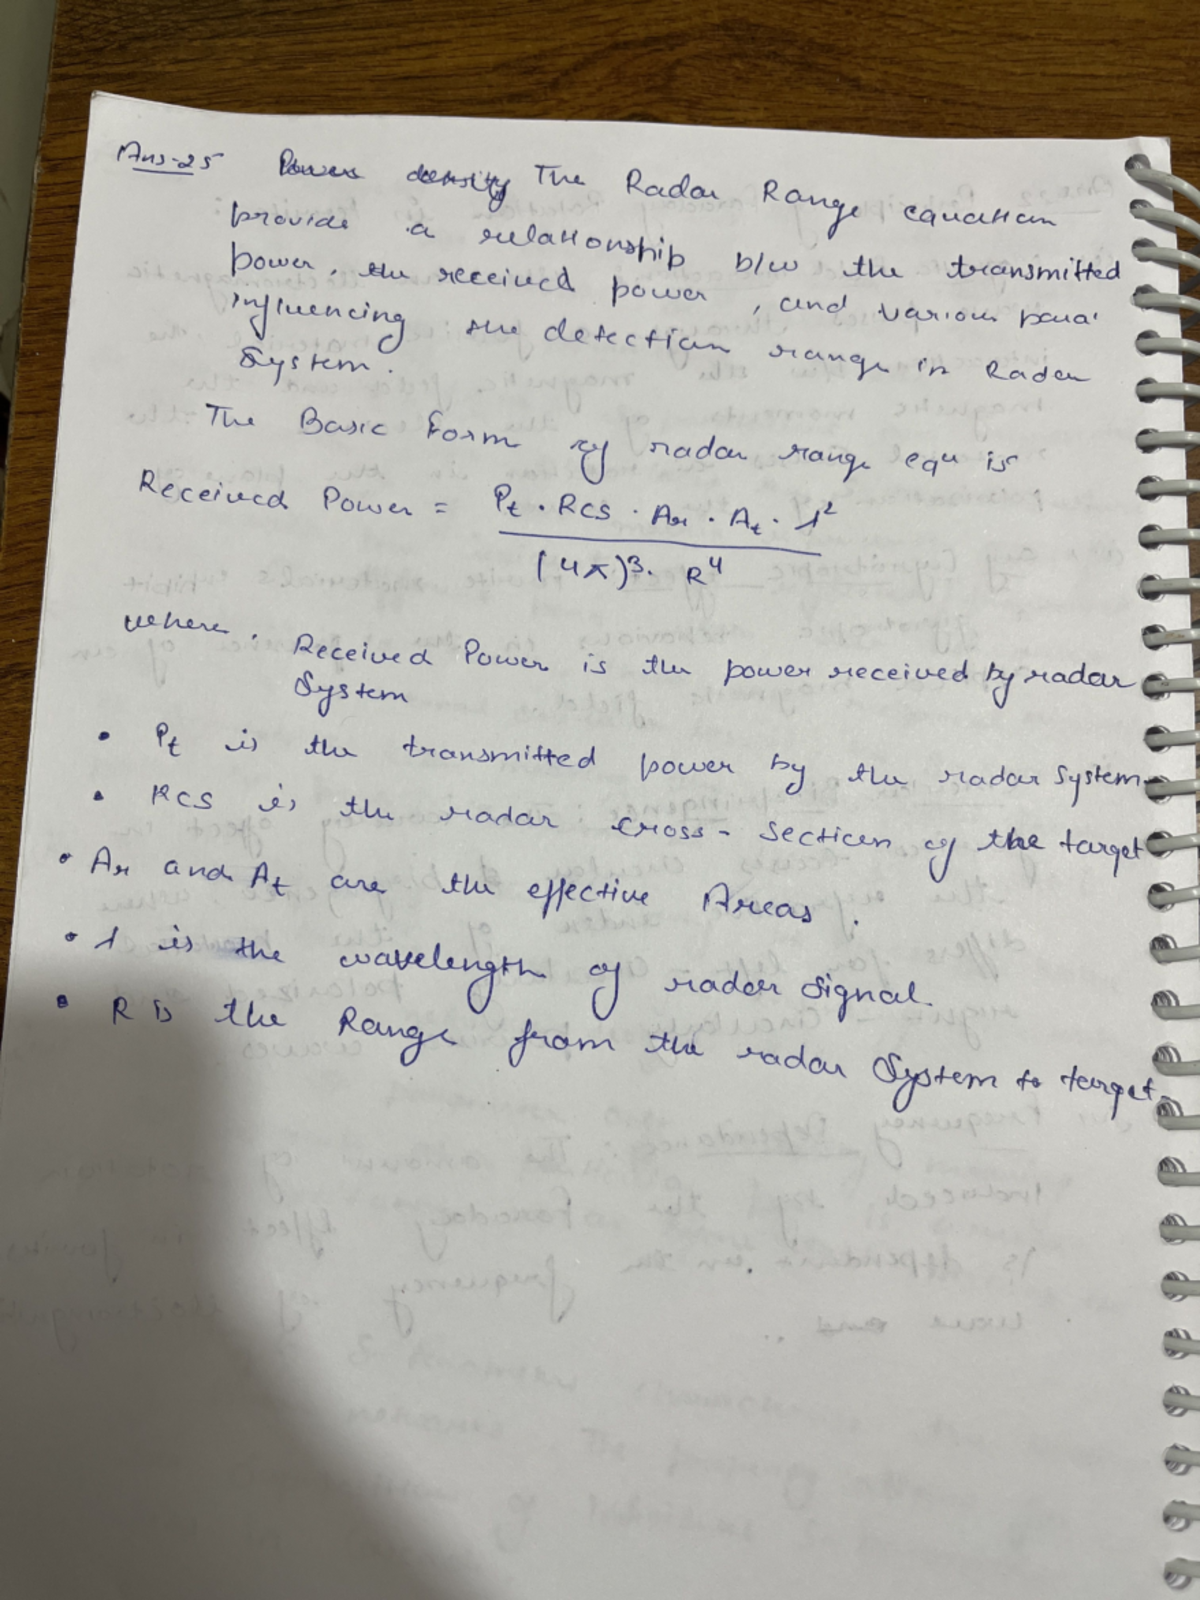 Ans-25 Power density The Radar Range equation
provide a relationship b/w the transmitted
power, the received power, and various para'
influencing the detection range in Radar
System.
The Basic Form of radar range equ is
Received Power = Pt . RCS . Ar . At . λ²
(4π)³. R⁴
where,
Received Power is the power received by radar
System
• Pt is the transmitted power by the radar System
• RCS is the radar cross-section of the target
• Ar and At are the effective Areas.
• λ is the wavelength of radar signal.
• R is the Range from the radar System to target.